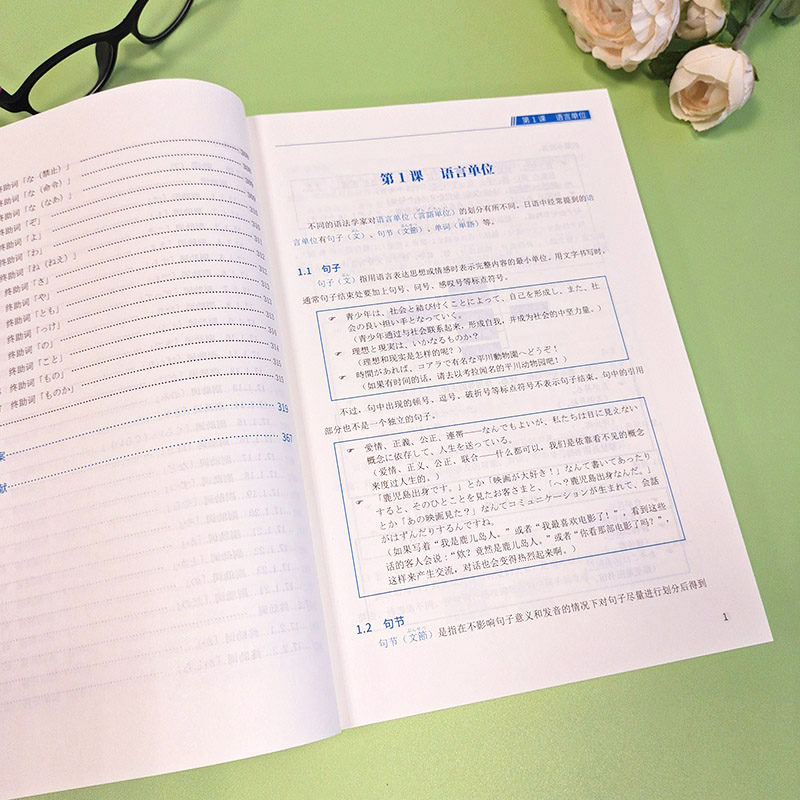 终助词「な（禁止）」 308
终助词「な（命令）」 308
终助词「な（なあ）」 309
终助词「ぞ」
终助词「よ」 310
终助词「わ」 311
终助词「ね（ねえ）」 311
终助词「さ」 312
终助词「や」 312
终助词「とも」
终助词「っけ」
终助词「の」 314
终助词「こと」 314
终助词「もの」 315
终助词「ものか」 315
案 319
献 367
第1课 语言单位
第1课 语言单位
不同的语法学家对语言单位（言語単位）的划分有所不同。日语中经常提到的语
言单位有句子（文）、句节（文節）、单词（単語）等。
1.1 句子
句子（文）指用语言表达思想或情感时表示完整内容的最小单位。用文字书写时，
通常句子结束处要加上句号、问号、感叹号等标点符号。
☞ 青少年は、社会と結び付くことによって、自己を形成し、また、社
会の良い担い手となっていく。
（青少年通过与社会联系起来，形成自我，并成为社会的中坚力量。）
☞ 理想と現実は、いかなるものか？
（理想和现实是怎样的呢？）
☞ 時間があれば、コアラで有名な平川動物園へどうぞ！
（如果有时间的话，请去以考拉闻名的平川动物园吧！）
不过，句中出现的顿号、逗号、破折号等标点符号不表示句子结束。句中的引用
部分也不是一个独立的句子。
☞ 愛情、正義、公正、連帯——なんでもよいが、私たちは目に見えない
概念に依存して、人生を送っている。
（爱情、正义、公正、联合——什么都可以，我们是依靠看不见的概念
来度过人生的。）
☞ 「鹿児島出身です。」とか「映画が大好き！」なんて書いてあったり
すると、そのひとことを見たお客さまと、「へ？鹿児島出身なんだ。」
とか「あの映画見た？」なんてコミュニケーションが生まれて、会話
がはずんだりするんですね。
（如果写着“我是鹿儿岛人。”或者“我最喜欢电影了！”，看到这些
话的客人会说：“欸？竟然是鹿儿岛人。”或者“你看那部电影了吗？”，
这样来产生交流，对话也会变得热烈起来啊。）
1.2 句节
句节（文節）是指在不影响句子意义和发音的情况下对句子尽量进行划分后得到
1